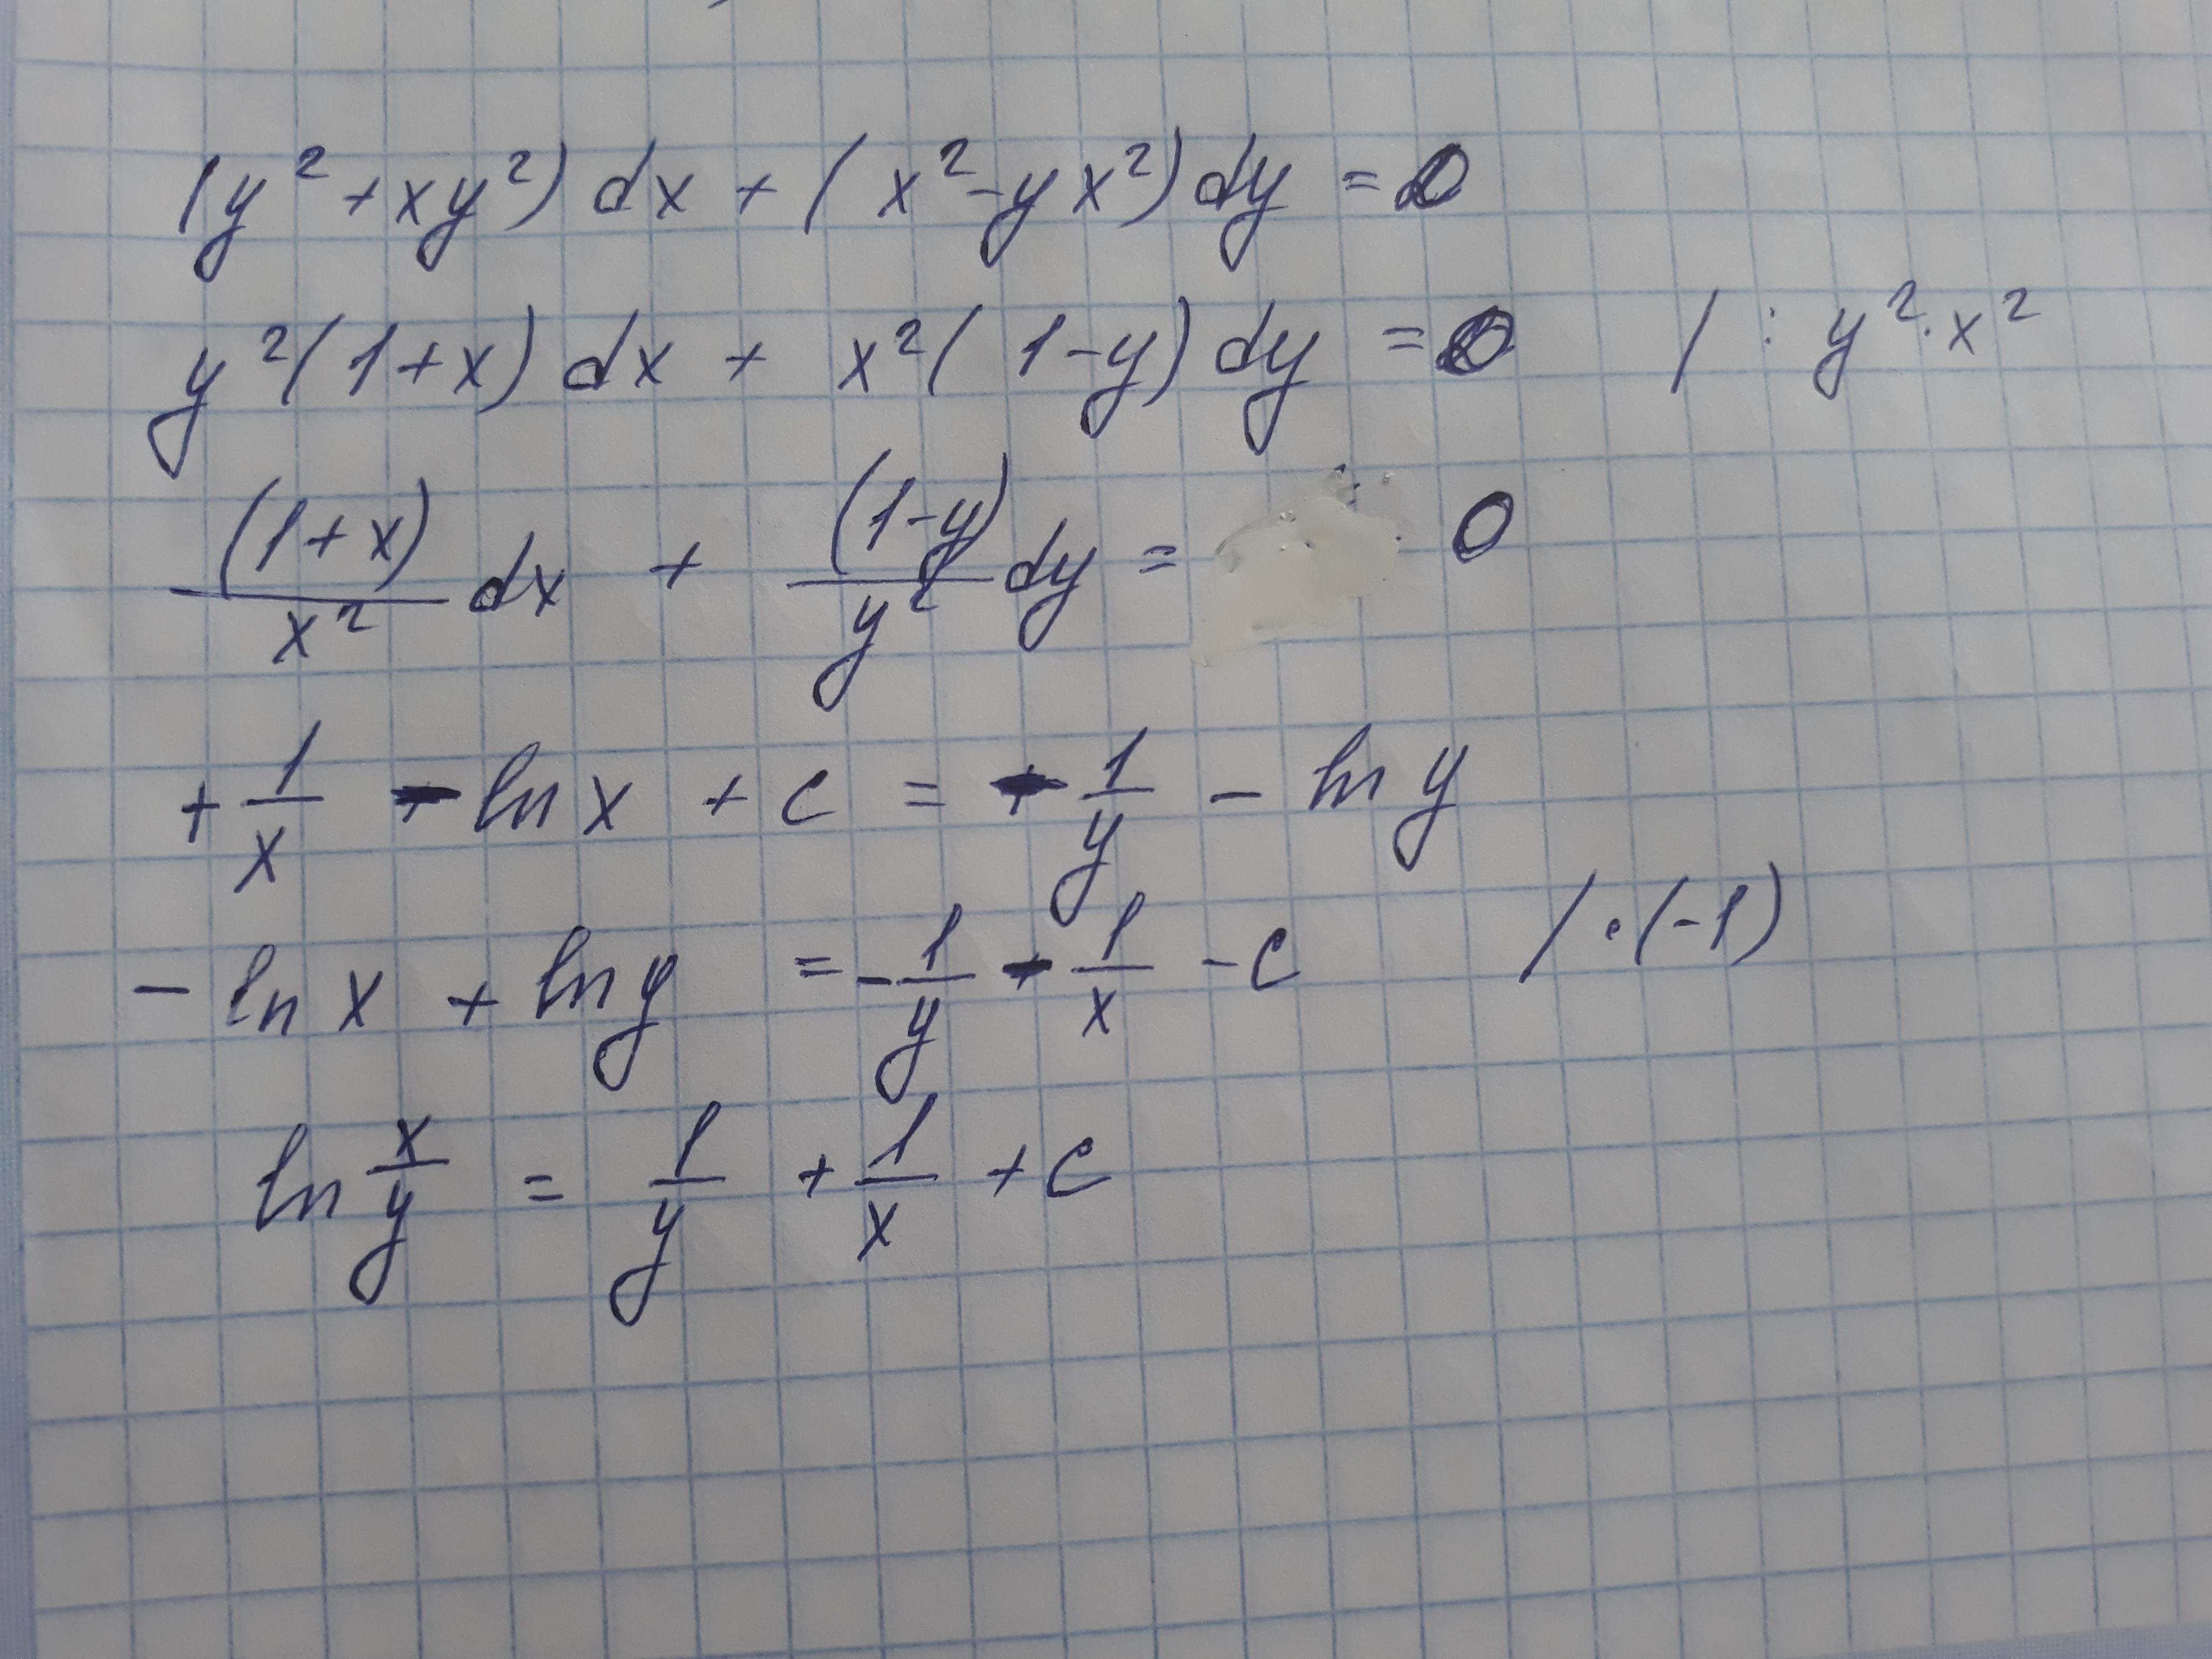 (y² + xy²) dx + (x² - yx²) dy = 0
y² (1 + x) dx + x² (1 - y) dy = 0 / : y² · x²
(1 + x)/x² dx + (1 - y)/y² dy = 0
+ 1/x - ln x + c = - 1/y - ln y
- ln x + ln y = - 1/y - 1/x - c / · (-1)
ln x/y = 1/y + 1/x + c